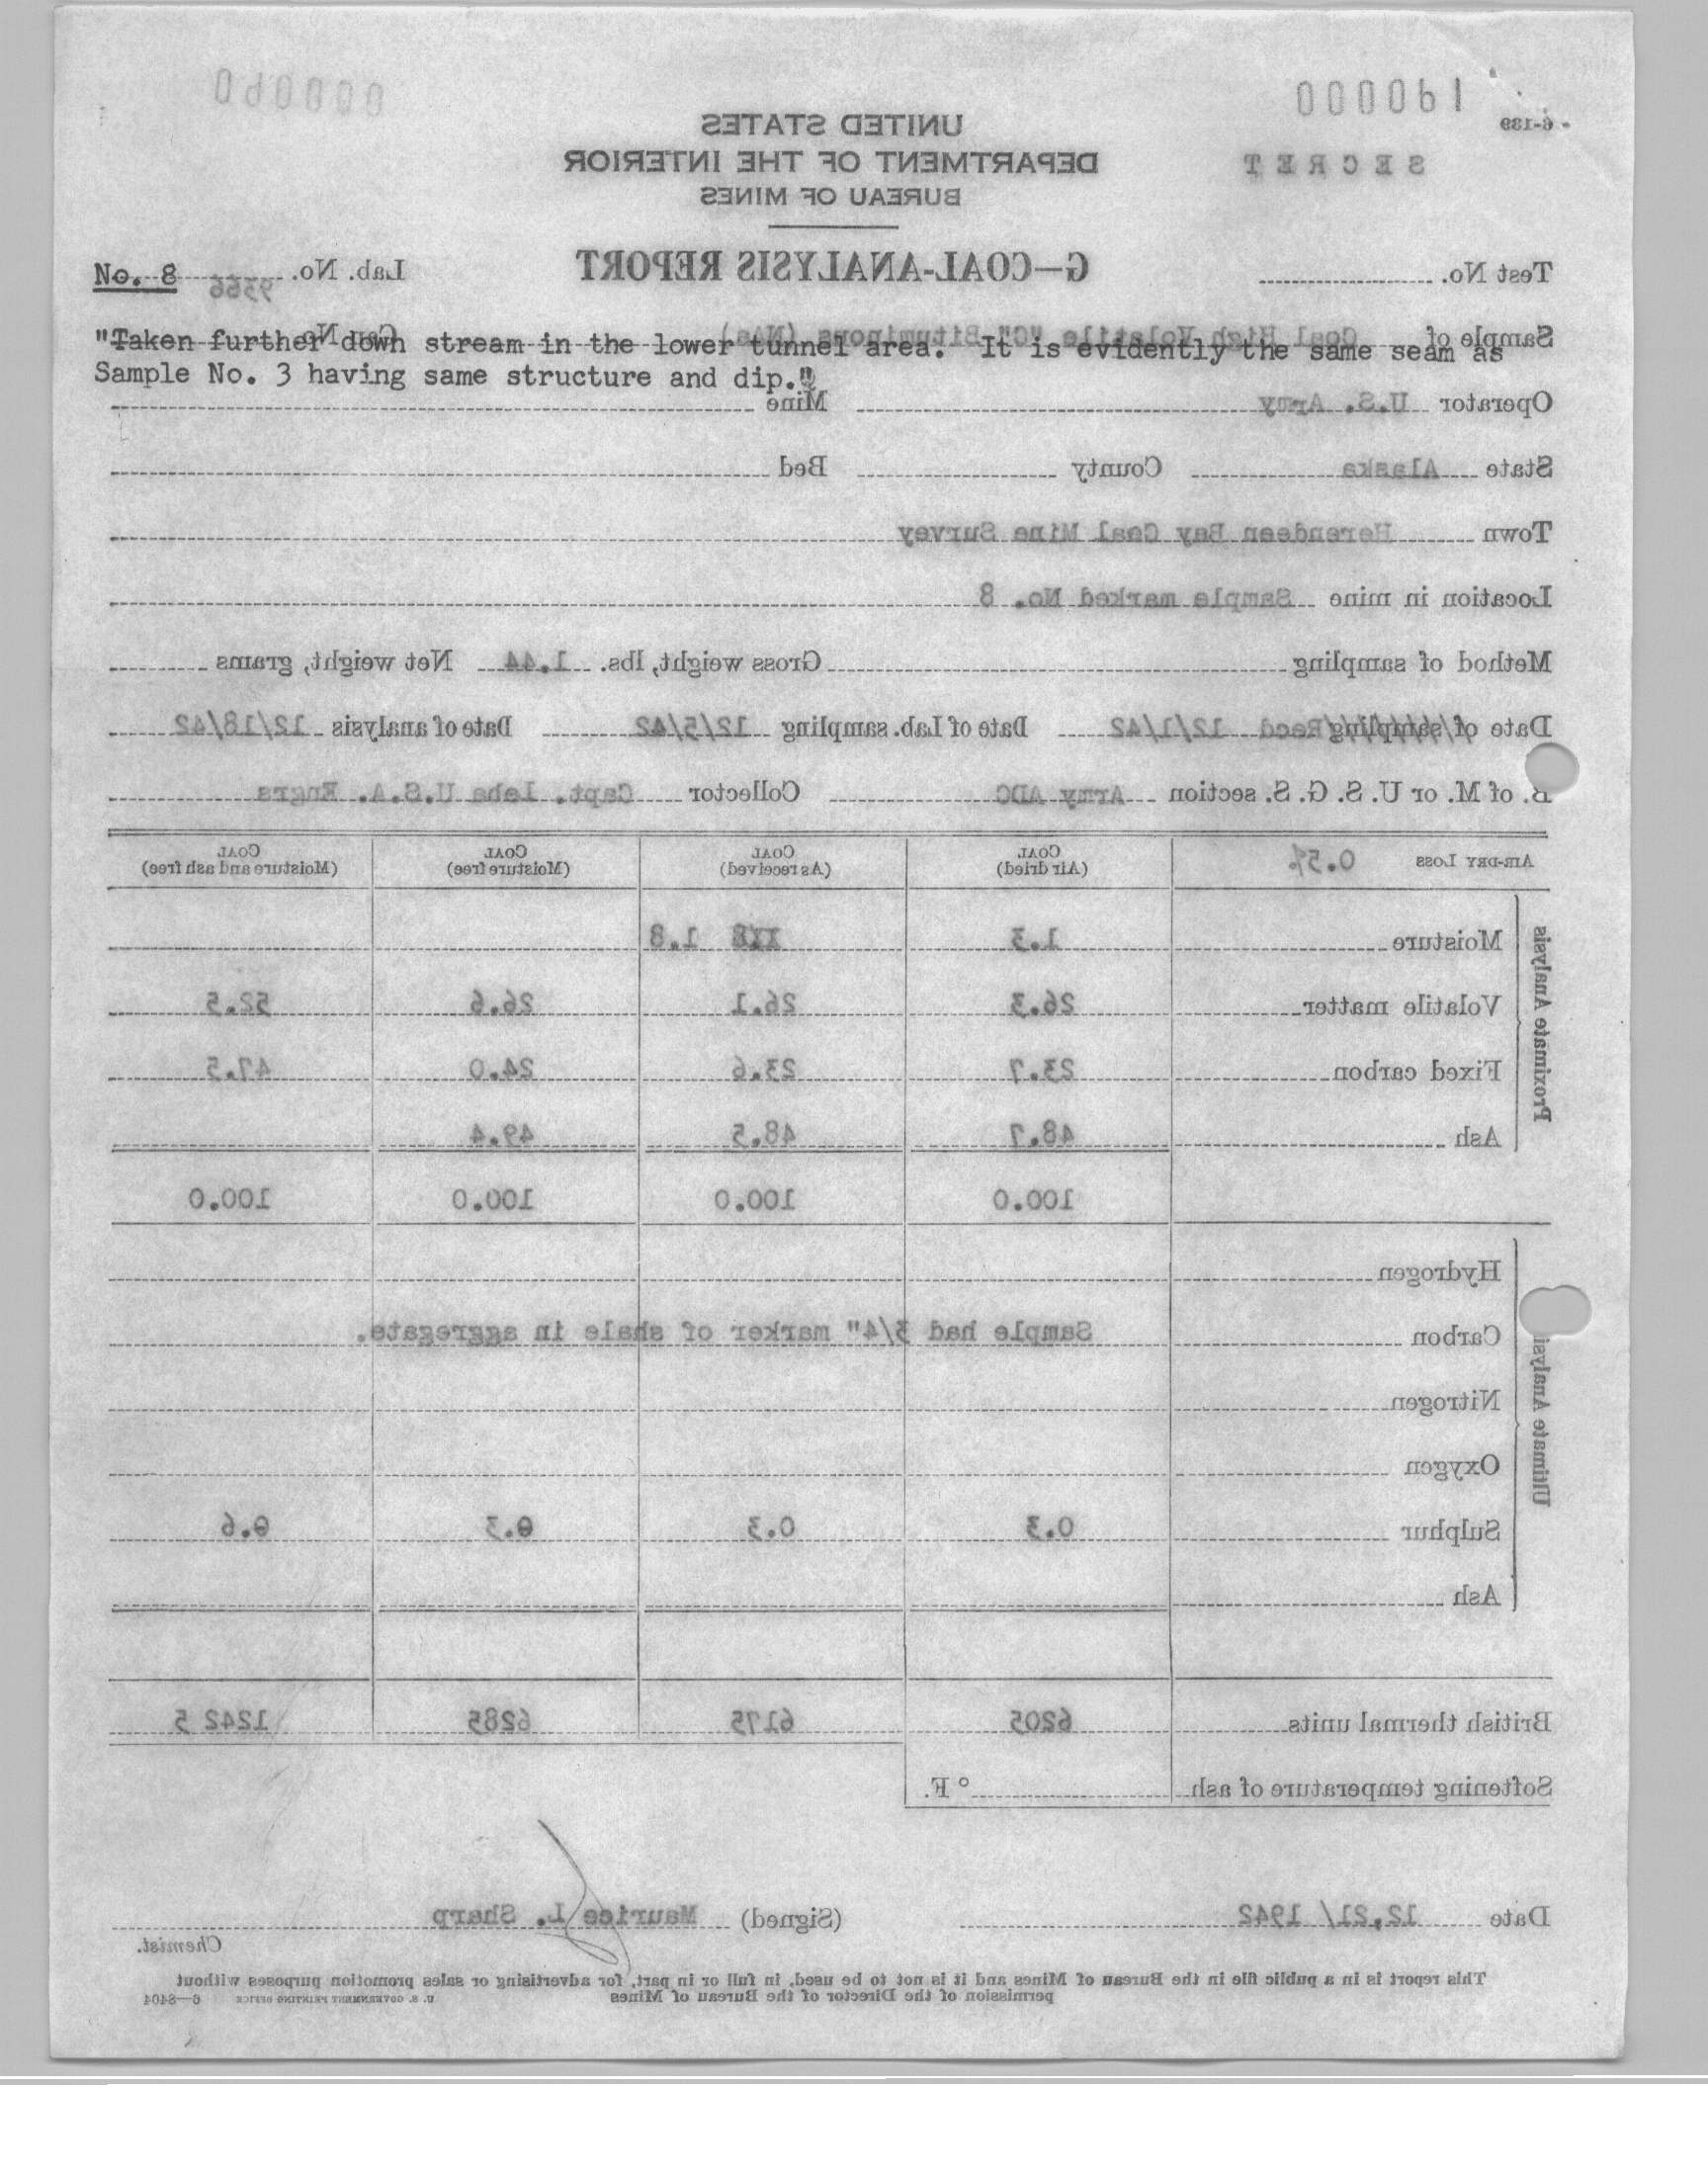 000061
000060
6-139
UNITED STATES
DEPARTMENT OF THE INTERIOR
BUREAU OF MINES
SECRET
G—COAL-ANALYSIS REPORT
Test No.
Lab. No. 9366
No. 8
Sample of Coal High Volatile "C" Bituminous (NAs) Can No.
"Taken further down stream in the lower tunnel area. It is evidently the same seam as
Sample No. 3 having same structure and dip."
Operator U.S. Army Mine
State Alaska County Bed
Town Herendeen Bay Coal Mine Survey
Location in mine Sample marked No. 8
Method of sampling Gross weight, lbs. 1.44 Net weight, grams
Date of sampling Recd 12/1/42 Date of Lab. sampling 12/5/42 Date of analysis 12/18/42
B. of M. or U. S. G. S. section Army ADC Collector Capt. Leha U.S.A. Engrs
AIR-DRY LOSS 0.5% COAL (Air dried) COAL (As received) COAL (Moisture free) COAL (Moisture and ash free)
Proximate Analysis
Moisture 1.3 1.8
Volatile matter 26.3 26.1 26.6 52.5
Fixed carbon 23.7 23.6 24.0 47.5
Ash 48.7 48.5 49.4
100.0 100.0 100.0 100.0
Ultimate Analysis
Hydrogen
Carbon Sample had 3/4" marker of shale in aggregate.
Nitrogen
Oxygen
Sulphur 0.3 0.3 0.3 0.6
Ash
British thermal units 6205 6175 6285 1242 5
Softening temperature of ash ° F.
Date 12,21/ 1942 (Signed) Maurice L. Sharp
Chemist.
This report is in a public file in the Bureau of Mines and it is not to be used, in full or in part, for advertising or sales promotion purposes without
permission of the Director of the Bureau of Mines
U. S. GOVERNMENT PRINTING OFFICE 6—8404